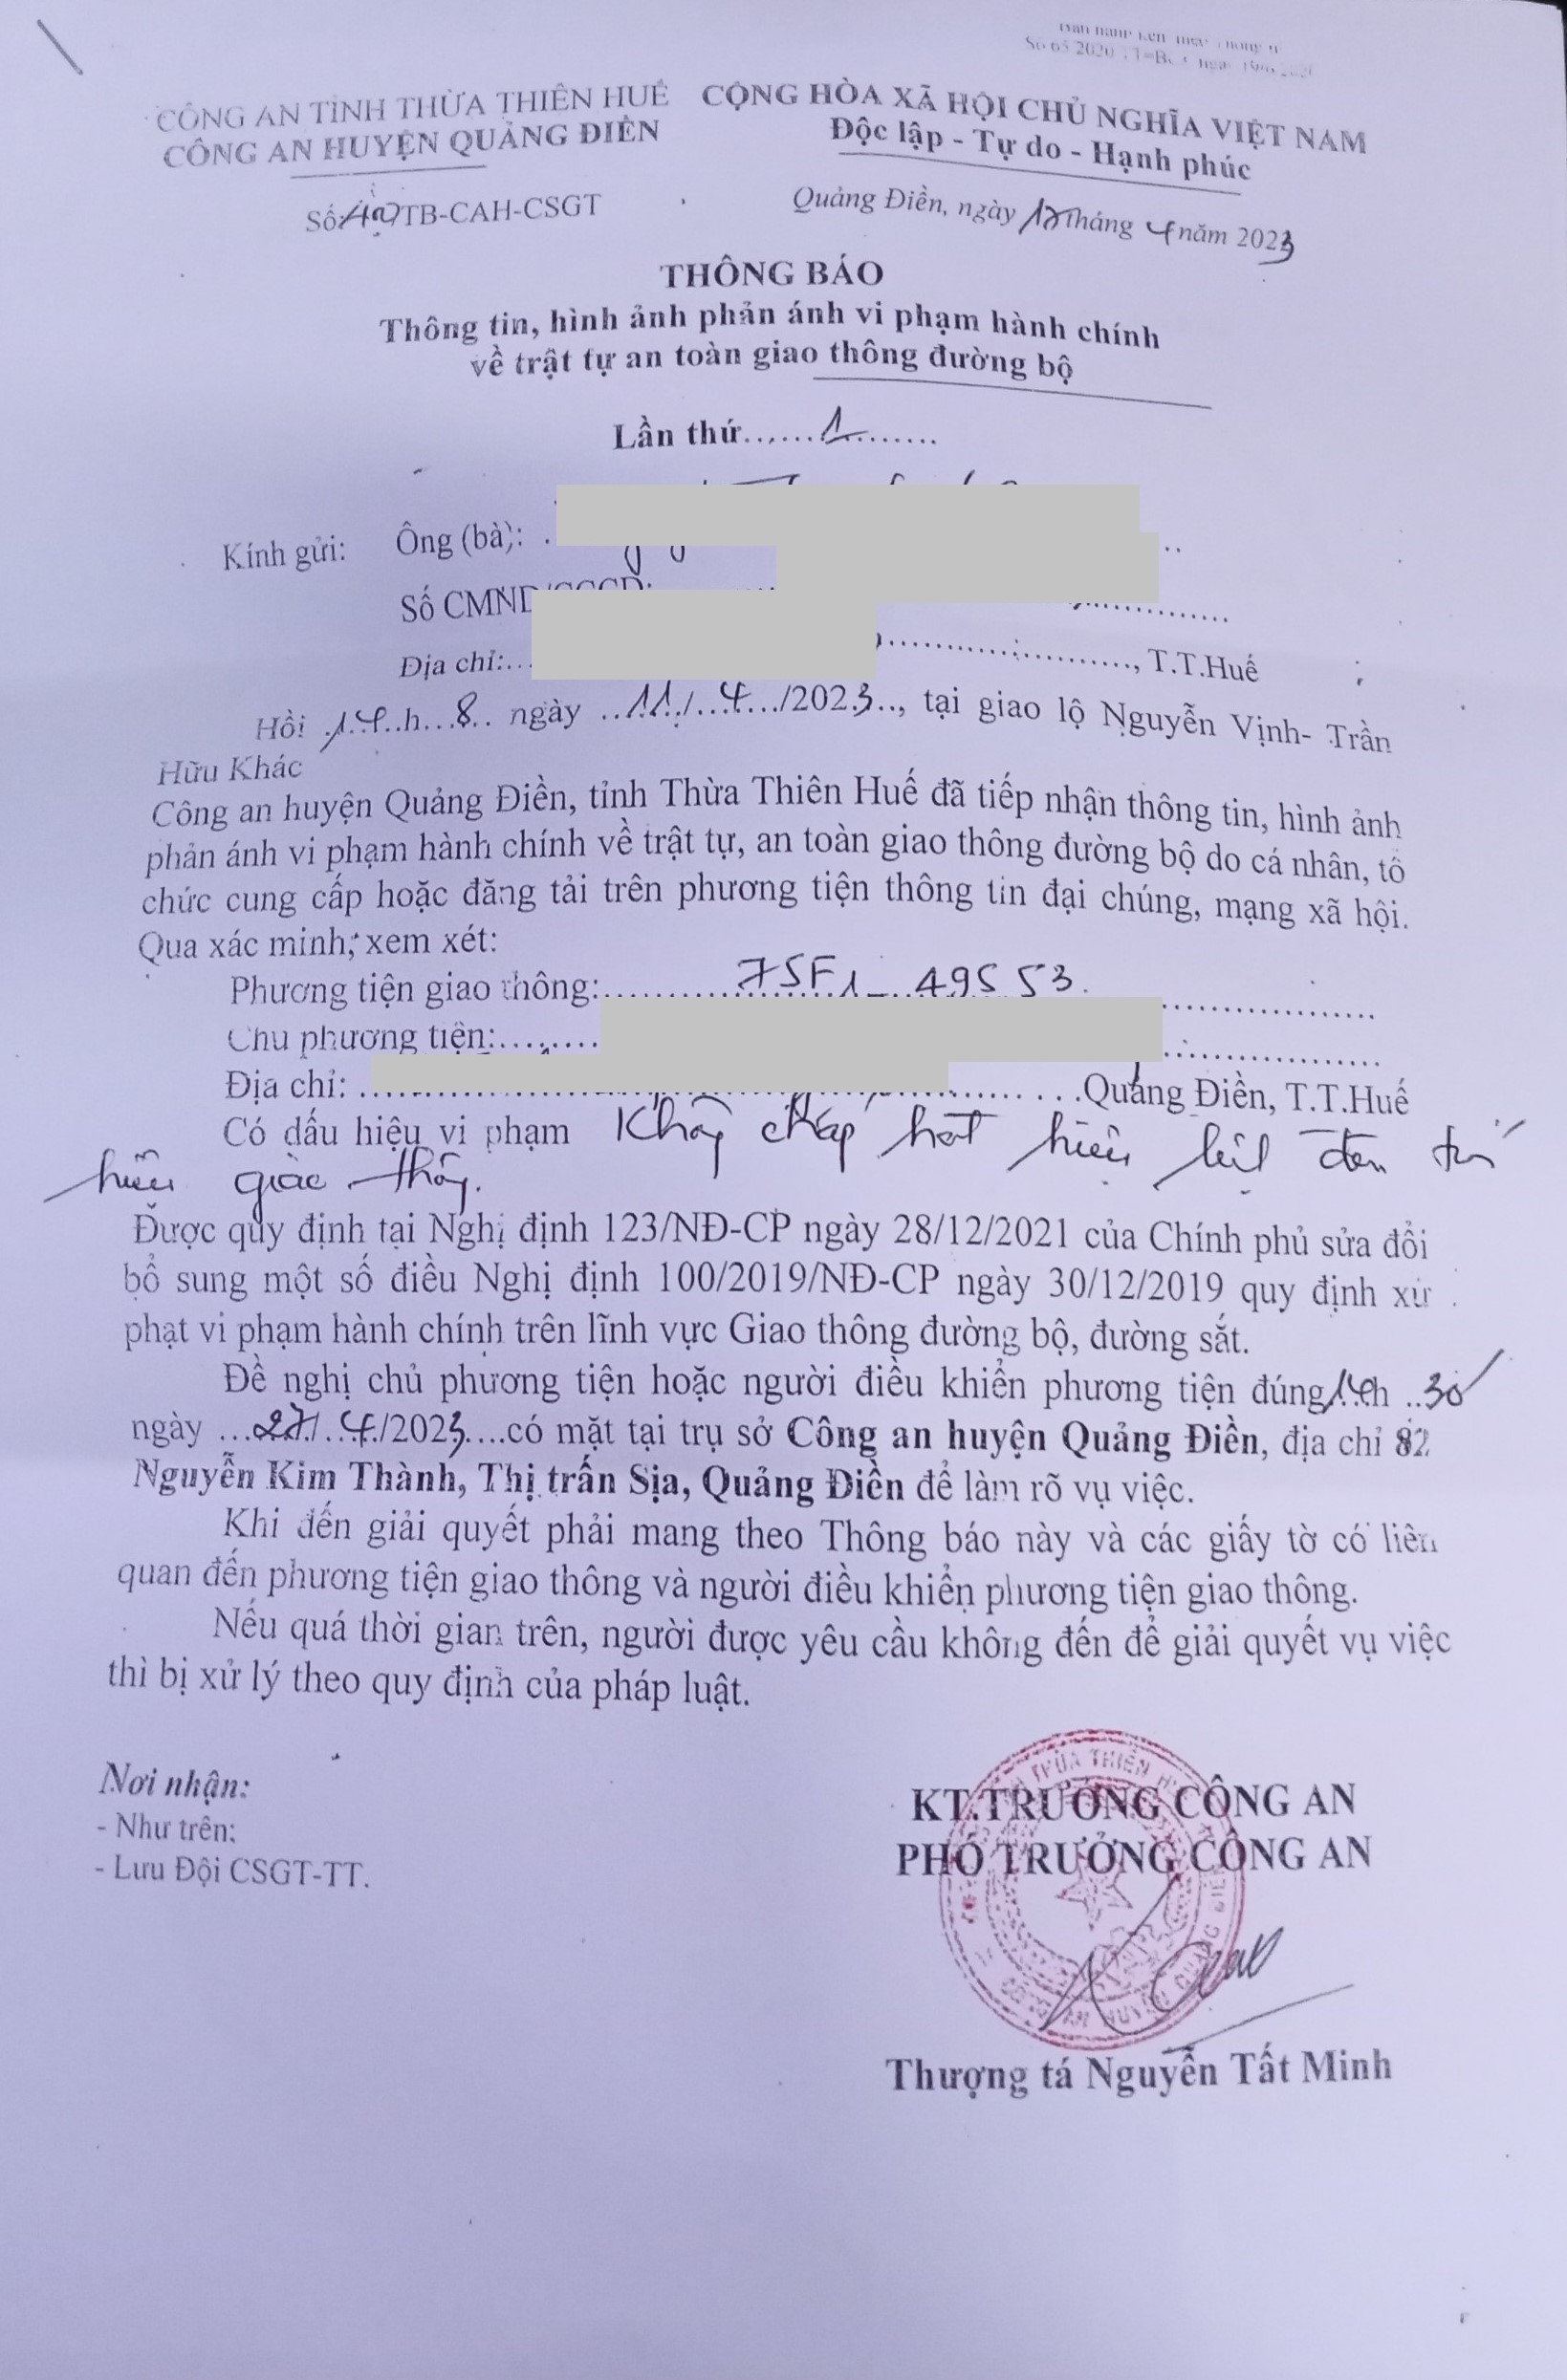 CÔNG AN TỈNH THỪA THIÊN HUẾ
CÔNG AN HUYỆN QUẢNG ĐIỀN
CỘNG HÒA XÃ HỘI CHỦ NGHĨA VIỆT NAM
Độc lập - Tự do - Hạnh phúc
Số: /TB-CAH-CSGT
Quảng Điền, ngày tháng 4 năm 2023
THÔNG BÁO
Thông tin, hình ảnh phản ánh vi phạm hành chính
về trật tự an toàn giao thông đường bộ
Lần thứ......1.........
Kính gửi: Ông (bà): .
Số CMND/CCCD:
Địa chỉ:... , T.T.Huế
Hồi .14..h...8.. ngày ..11./...4.../2023.., tại giao lộ Nguyễn Vịnh- Trần
Hữu Khác
Công an huyện Quảng Điền, tỉnh Thừa Thiên Huế đã tiếp nhận thông tin, hình ảnh
phản ánh vi phạm hành chính về trật tự, an toàn giao thông đường bộ do cá nhân, tổ
chức cung cấp hoặc đăng tải trên phương tiện thông tin đại chúng, mạng xã hội.
Qua xác minh, xem xét:
Phương tiện giao thông:..........75F1-49553.
Chủ phương tiện:........
Địa chỉ: ... Quảng Điền, T.T.Huế
Có dấu hiệu vi phạm Không chấp hành hiệu lệnh đèn tín
hiệu giao thông.
Được quy định tại Nghị định 123/NĐ-CP ngày 28/12/2021 của Chính phủ sửa đổi
bổ sung một số điều Nghị định 100/2019/NĐ-CP ngày 30/12/2019 quy định xử
phạt vi phạm hành chính trên lĩnh vực Giao thông đường bộ, đường sắt.
Đề nghị chủ phương tiện hoặc người điều khiển phương tiện đúng 14h ..30
ngày ...27./..4./2023....có mặt tại trụ sở Công an huyện Quảng Điền, địa chỉ 82
Nguyễn Kim Thành, Thị trấn Sịa, Quảng Điền để làm rõ vụ việc.
Khi đến giải quyết phải mang theo Thông báo này và các giấy tờ có liên
quan đến phương tiện giao thông và người điều khiển phương tiện giao thông.
Nếu quá thời gian trên, người được yêu cầu không đến để giải quyết vụ việc
thì bị xử lý theo quy định của pháp luật.
Nơi nhận:
- Như trên;
- Lưu Đội CSGT-TT.
KT.TRƯỞNG CÔNG AN
PHÓ TRƯỞNG CÔNG AN
Thượng tá Nguyễn Tất Minh